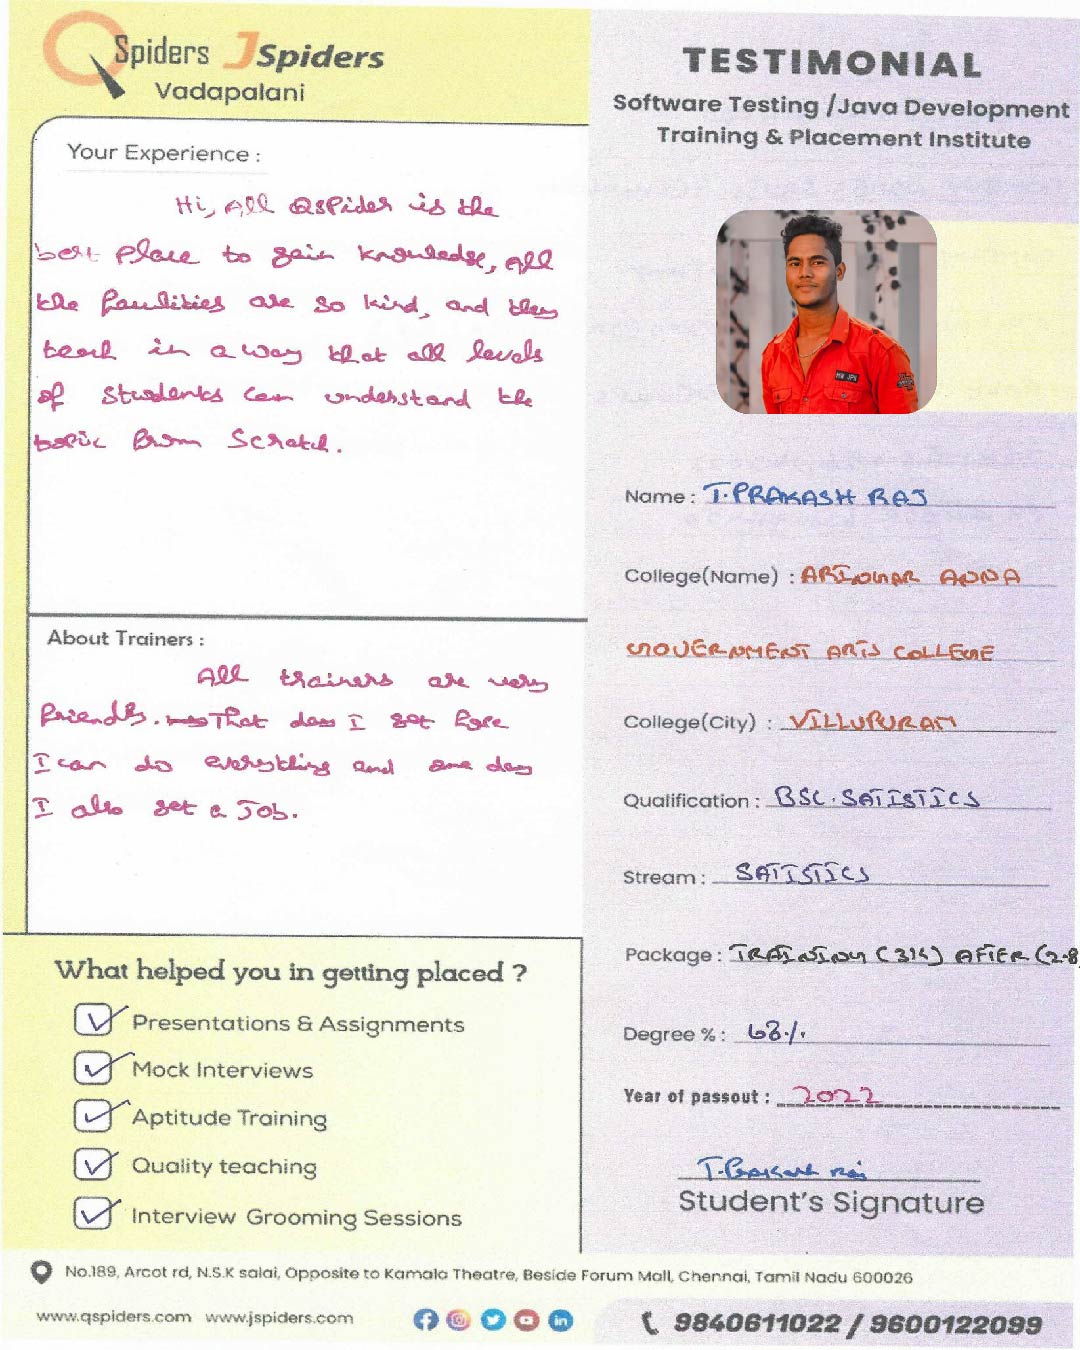 QSpiders JSpiders
Vadapalani
Your Experience :
Hi, All QSPider is the
best place to gain knowledge, All
the faculities are so kind, and they
teach in a way that all levels
of students can understand the
topic from Scratch.
About Trainers :
All trainers are very
friendly. That day I get hope
I can do everything and one day
I also get a Job.
What helped you in getting placed ?
Presentations & Assignments
Mock Interviews
Aptitude Training
Quality teaching
Interview Grooming Sessions
TESTIMONIAL
Software Testing /Java Development
Training & Placement Institute
MH JPN
Name : T.PRAKASH RAJ
College(Name) : ARIGNAR ANNA
GOVERNMENT ARTS COLLEGE
College(City) : VILLUPURAM
Qualification : BSC.SATISTICS
Stream : SATISTICS
Package : TRAINING (31K) AFTER (2.8
Degree % : 63%
Year of passout : 2022
T.Prakash raj
Student's Signature
No.189, Arcot rd, N.S.K salai, Opposite to Kamala Theatre, Beside Forum Mall, Chennai, Tamil Nadu 600026
www.qspiders.com www.jspiders.com
9840611022 / 9600122099